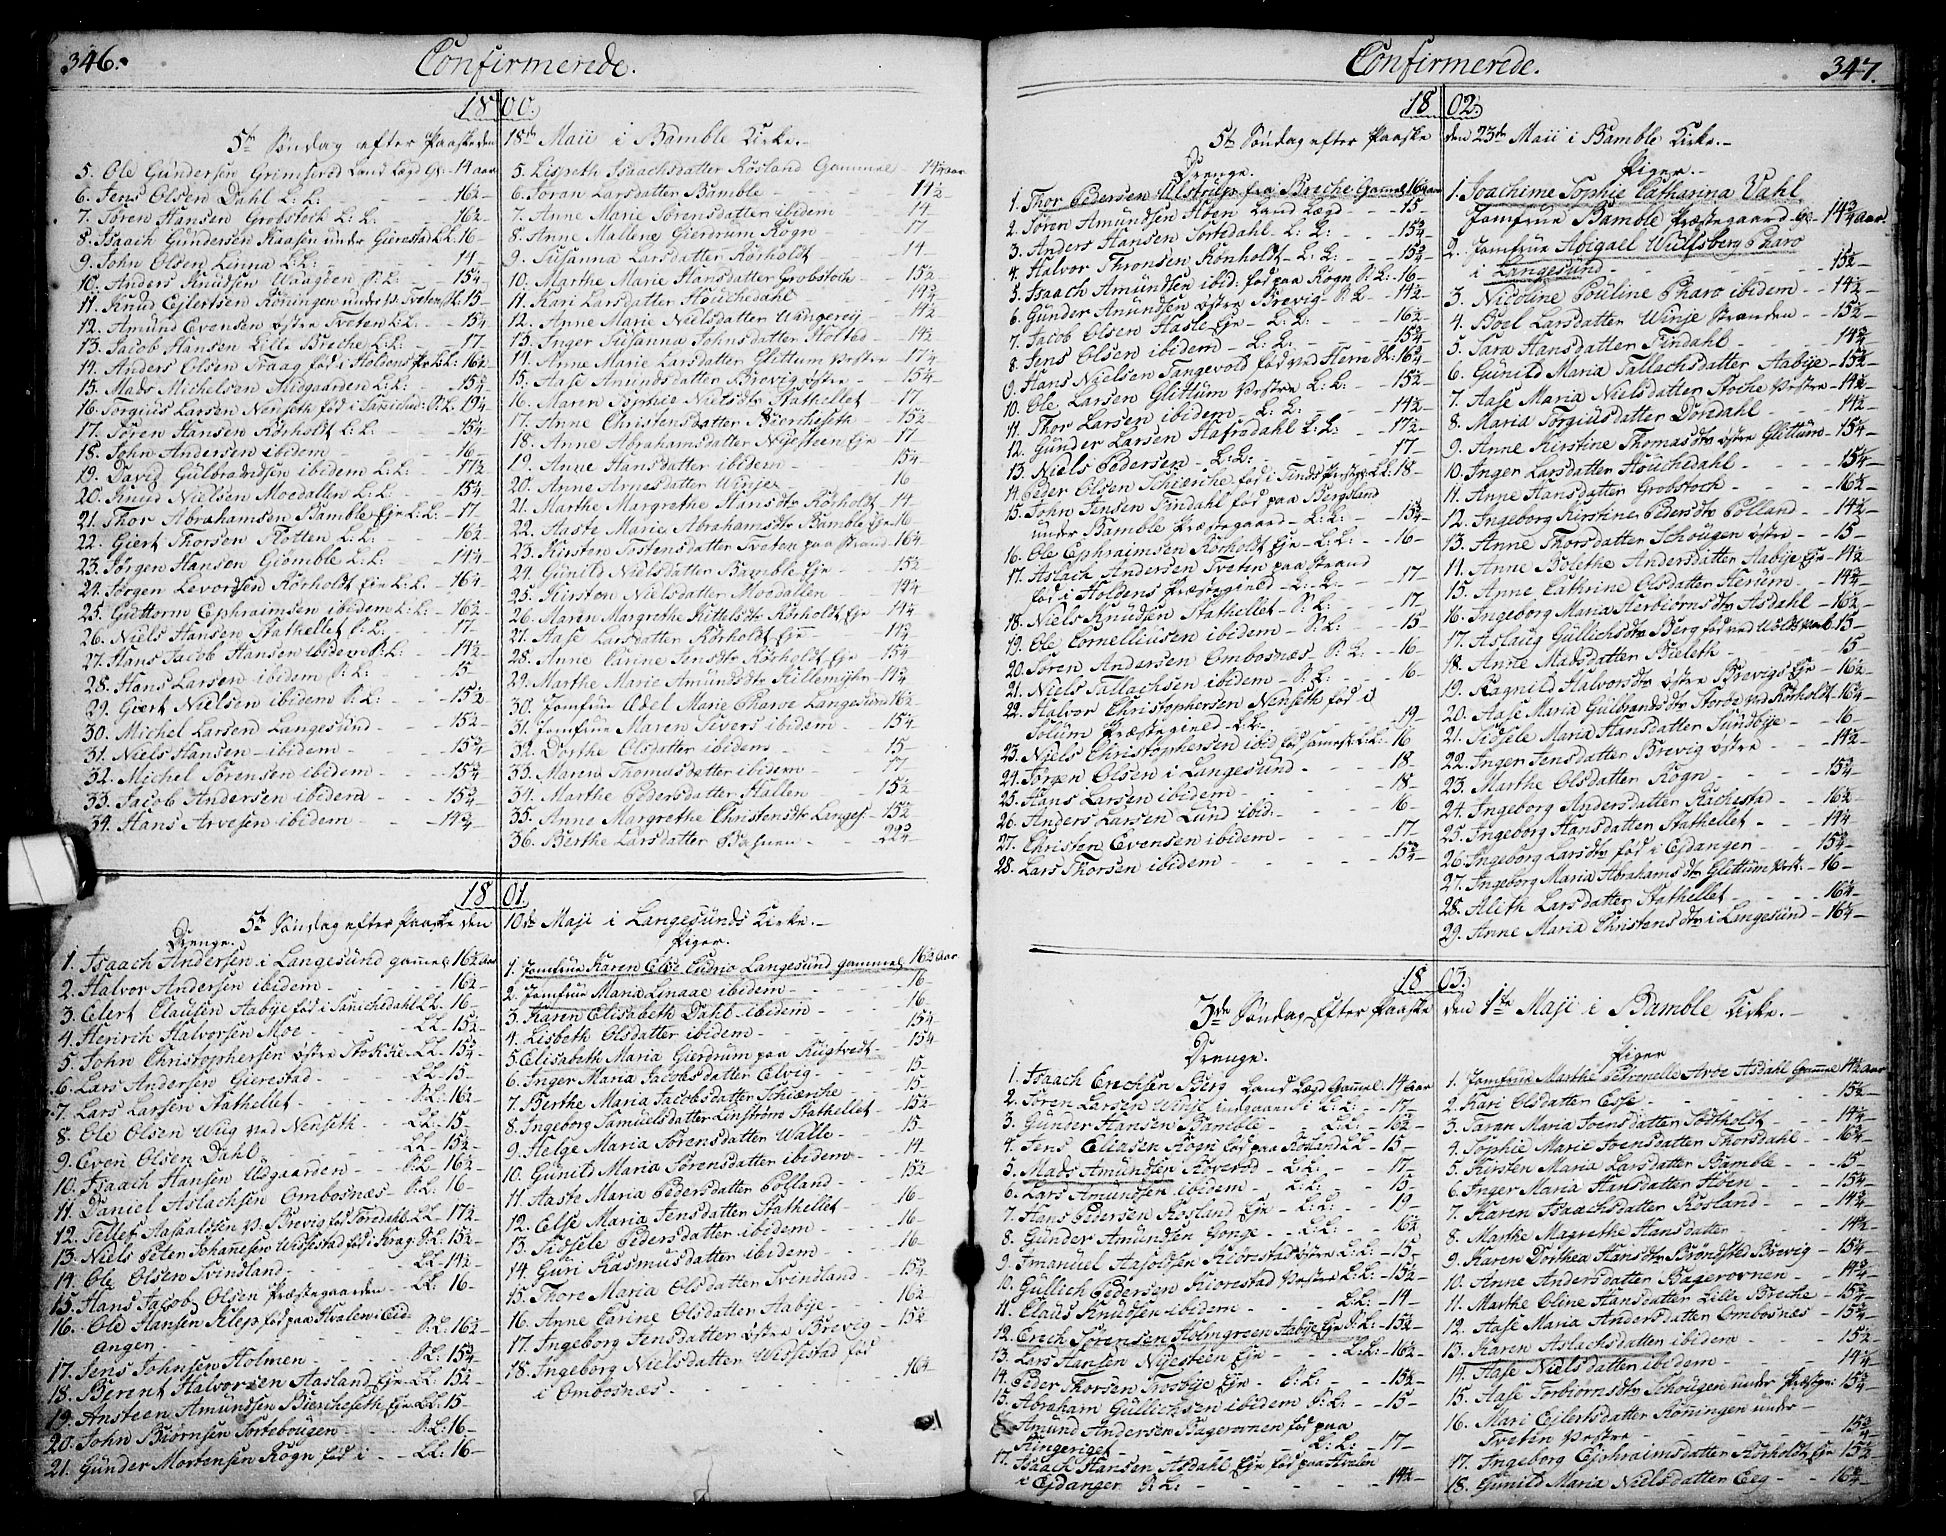 346.
Confirmerede.
1800.
5te Søndag efter Paaske den 18de Maii i Bamble Kirke.
5. Ole Gundersen Grimserød Land Lægd Gl: 14 aar
6. Jens Olsen Dahl L: L: - 16½
7. Søren Hansen Grobstock L: L: - 16½
8. Isaach Gundersen Kaasen under Gierestad L.L: 16-
9. John Olsen Linna L: L: - 14-
10. Anders Knudsen Waagøen S: L: - 15¼
11. Knud Ejlertsen Röningen under W Tveten S.L: 15-
12. Amund Evensen østre Tveten L: L: - 15¼
13. Jacob Hansen Lille Breche L: L: - 17-
14. Anders Olsen Traag fød i Holdens Pr: L.L: 16½
15. Mads Michelsen Midgaarden L: L: - 15¼
16. Torgius Larsen Nenseth fød i Saniched: S: L: 19¼
17. Søren Hansen Rörholdt L: L: - 15¼
18. John Andersen ibidem - 16-
19. David Gulbrandsen ibidem L: L: - 17½
20. Knud Nielsen Moedallen L: L: - 15¼
21. Thor Abrahamsen Bamble Eje L: L: - 17
22. Giert Thorsen Rotten L: L: - 16½
23. Jørgen Hansen Giømble L: L: - 14¾
24. Jørgen Levordsen Rörholdt Eje L: L: - 16¼
25. Guttorm Ephraimsen ibidem L: L: - 16½
26. Niels Hansen Stathellet S: L: - 17-
27. Hans Jacob Hansen ibidem S: L: - 14½
28. Hans Larsen ibidem S: L: - 15
29. Giert Nielsen ibidem S: L: - 15½
30. Michel Larsen Langesund - 15½
31. Niels Hansen - ibidem - 15¾
32. Michel Sørensen ibidem - 15¾
33. Jacob Andersen ibidem - 15¾
34. Hans Arvesen ibidem - 14¾
5. Lispeth Isaachsdatter Rösland Gammel - 14½ aar
6. Søran Larsdatter Bamble - 14½
7. Anne Marie Sørensdatter ibidem - 14
8. Anne Mallene Gierdrum Rogn - 17
9. Susanna Larsdatter Rörholdt - 14
10. Marthe Marie Hansdatter Grobstoch - 15½
11. Kari Larsdatter Houchedahl - 14¾
12. Anne Marie Nielsdatter Wangerej - 14½
13. Inger Susanna Johnsdatter Holtet - 14½
14. Anne Marie Larsdatter Glittum Vestre - 17¼
15. Aase Amundsdatter Brevig østre - 15¼
16. Maren Sophie Nielsdtr Stathellet - 17
17. Anne Christensdatter Biercheseth - 15½
18. Anne Abrahamsdatter Nigesteen Eje - 17
19. Anne Hansdatter ibidem - 15¼
20. Anne Arnesdatter Winje - 16
21. Marthe Margrethe Hansdtr Rörholdt - 14
22. Aaste Marie Abrahamsdtr Bamble Eje 16
23. Kirsten Tostensdatter Tveten paa Strand 16¼
24. Gunild Nielsdatter Bamble Eje - 15½
25. Kirsten Nielsdatter Moedallen - 14¼
26. Maren Margrethe Kittelsdtr Rörholdt Eje - 14¼
27. Aase Larsdatter Rörholdt Eje - 14¾
28. Anne Carine Jensdtr Rörholdt Eje - 15¼
29. Marthe Marie Amundsdtr Killemyhr - 14¾
30. Jomfrue Adel Marie Pharoe Langesund 16½
31. Jomfrue Maren Sivers ibidem - 15¼
32. Dorthe Olsdatter ibidem - 15-
33. Maren Thomasdatter ibidem - 17
34. Marthe Pedersdatter Hallen - 15½
35. Anne Margrethe Christensdtr Langes. - 15½
36. Berthe Larsdatter - 22¾
1801.
5te Søndag efter Paaske den 10de Maji i Langesunds Kirke.
Drenge.
1. Isaach Andersen i Langesund gammel 16½ Aar
2. Halvor Andersen ibidem - 16½
3. Eilert Clausen Aabije fød i Sanichedahl L.L. 16-
4. Henrich Halvorsen Moe - L.L. 15½
5. John Christophersen østre Stokke L.L. 15¾
6. Lars Andersen Gierestad - L.L. 15-
7. Lars Larsen Stathellet - S.L: 16½
8. Ole Olsen Wug ved Nenseth - L.L: 15-
9. Even Olsen Dahl - L.L. 15½
10. Isaach Hansen Udgaarden - S.L. 16½
11. Daniel Aslachsen Ombosnæs S: L: 16-
12. Tellef Aasaalssen V. Brevig fød Tørdahl L.L. 17½
13. Niels Peter Johanesen Widsestad fød i Krag. S.L: 15½
14. Ole Olsen Svindland - L.L. 14½
15. Hans Jacob Olsen Præstegaarden - L.L. 16-
16. Ole Hansen Klep fød paa Hvalen Eid
angen - S.L: 16½
17. Jens Johnsen Holmen - S.L: 15¾
18. Berent Halvorsen Aasland Eje - L.L: 15½
19. Ansteen Amundsen Biercheseth Eje L.L. 15-
20. John Biørnsen Tortebougen - S.L: 16-
21. Gunder Mortensen Rogn fød i - L.L: 16-
Piger.
1. Jomfrue Karen Else Cudrio Langesund gammel 16½ Aar
2. Jomfrue Maria Linaae ibidem - 16-
3. Karen Elisabeth Dahl ibidem - 16
4. Lisbeth Olsdatter ibidem - 15¼
5. Elisabeth Maria Gierdrum paa Rugtvedt - 15¼
6. Inger Maria Jacobsdatter Elvig - 15-
7. Berthe Maria Jacobsdatter Schiærche - 15-
8. Ingeborg Samuelsdatter Linstrøm Stathellet - 15½
9. Helge Maria Sørensdatter Walle - 15-
10. Gunild Maria Sørensdatter ibidem - 14
11. Aaste Maria Pedersdatter Polland - 15½
12. Else Maria Jensdatter Stathellet - 16-
13. Sidsele Pedersdatter ibidem - 16-
14. Guri Rasmusdatter ibidem - 16-
15. Thore Maria Olsdatter Svindland - 15¾
16. Anne Carine Olsdatter Aabije - 16½
17. Ingeborg Jensdatter østre Brevig - 15½
18. Ingeborg Nielsdatter Widsestad fød
i Ombosnæs - 16¼
347.
Confirmerede.
1802.
5te Søndag efter Paaske den 23de Maii i Bamble Kirke.
Drenge.
1. Thor Pedersen Ulstrup fra Breche Gammel 16 aar
2. Søren Amundsen Aben Land Lægd - 15
3. Anders Hansen Tortedahl L: L: - 15¼
4. Halvor Thronsen Rönholdt L: L: - 15¾
5. Isaach Amundsen ibid: fød paa Rogn S: L: 16-
6. Gunder Amundsen østre Brevig S: L - 14½
7. Jacob Olsen Hasle Eje - L: L: - 16½
8. Jens Olsen ibidem - L: L: - 15¾
9. Hans Nielsen Tangevold fød ved Hern S.L: 16¾
10. Ole Larsen Glittum Vestre L: L: - 15½
11. Thor Larsen ibidem - L: L: - 14½
12. Gunder Larsen Hafredahl L: L: - 17½
13. Niels Pedersen - L: L: - 17
14. Peder Olsen Schierche fød i Tinds Præsteg: L.L: 18-
15. John Jensen Findahl fød paa Bergsland
under Bamble Præstegaard - L: L: - 15¾
16. Ole Ephraimsen Rörholdt Eje - L: L: - 16-
17. Aslach Andersen Tveten paa Strand
fød i Holdens Præstegield - L: L: - 17
18. Niels Knudsen Stathellet - S: L: - 17
19. Ole Corneliusen ibidem - S: L: - 15
20. Søren Andersen Ombosnæs S: L: - 16
21. Niels Tallachsen ibidem - S: L: - 16
22. Halvor Christophersen Nenseth fød i
Solum Præstegield L.L: - 19-
23. Niels Christophersen ibid: fød sammest. L.L: 16
24. Jørgen Olsen i Langesund - 18-
25. Hans Larsen ibidem - 18-
26. Anders Larsen Lund ibid: - 16-
27. Christen Evensen ibidem - 17-
28. Lars Thorsen ibidem - 15¾
Piger.
1. Joachime Sophie Catharina Vahl
Jomfrue Bamble Præstegaard Gl: 14¾ Aar.
2. Jomfrue Abigaell Wullsberg Pharo
i Langesund - 15½
3. Nicoline Pouline Pharo ibidem - 14½
4. Boel Larsdatter Winje Stranden - 15½
5. Sara Hansdatter Findahl - 14¾
6. Gunild Maria Tallachsdatter Aabije - 15½
7. Aase Maria Nielsdatter Stoche Vestre - 14½
8. Maria Torgiusdatter Dördahl - 14½
9. Anne Kirstine Thomasdtr østre Glittum - 15¼
10. Inger Larsdatter Houchedahl - 15¼
11. Anne Hansdatter Grobstoch - 16½
12. Ingeborg Kirstine Pedersdtr Polland - 14½
13. Anne Thorsdatter Schougen østre - 15
14. Anne Bolethe Andersdatter Aabije Eje - 14½
15. Anne Cathrine Olsdatter Herum - 14¾
16. Ingeborg Maria Herbiørnsdtr Asdahl - 16½
17. Aslaug Gullichsdtr Berg fød ved Woldspæl 15-
18. Anne Madsdatter Bieleth - 15
19. Ragnild Halvorsdtr østre Brevigs Eje - 16½
20. Aase Maria Gulbrandsdtr Storøe ved Rörholdt 16¾
21. Sidsele Maria Hansdatter Sundbije - 16-
22. Inger Jensdatter Brevig østre - 14½
23. Marthe Olsdatter Rogn - 15¾
24. Ingeborg Andersdatter Rachestad - 16½
25. Ingeborg Hansdatter Stathellet - 14¼
26. Ingeborg Larsdtr fød i Ejdangen - 15¾
27. Ingeborg Maria Abrahamsdtr Glittum Vest: - 16-
28. Alith Larsdatter Stathellet - 16¼
29. Anne Maria Christensdtr i Langesund - 16¼
1803.
3de Søndag Efter Paaske den 1te Maji i Bamble Kirke.
Drenge.
1. Isaach Erichsen Berg Land Lægd Gammel 14 Aar
2. Søren Larsen Winje L: L: - 17-
3. Gunder Hansen Bamble - L: L: - 16½
4. Jens Eliasen Rogn fød paa Rosland L.L 15-
5. Mads Amundsen Röverød - L: L: - 17-
6. Lars Amundsen ibidem - L: L: - 15-
7. Hans Pedersen Rosland Eje - L: L: - 19-
8. Gunder Amundsen Gonge - L.L: - 16½
9. Imanuel Aasolsen Kiörestad østre L: L: - 15-
10. Gullich Pedersen Kiörestad Vestre L: L: - 15½
11. Claus Knudsen ibidem - L: L: - 14-
12. Erich Sørensen Holmgreen Aabije Eje S: L: - 15½
13. Lars Hansen Nigesteen Eje - L: L: - 16½
14. Peder Thorsen Trosbije Eje - S: L: - 15½
15. Abraham Gullichsen ibidem S: L: - 15-
Amund Andersen Bagerovnen fød paa
Ringeriget - L: L: - 17-
17. Isaach Hansen Asdahl Eje fød paa Hvalen
i Ejdanger S: L: - 14½
Piger
1. Jomfrue Marthe Petronelle Aroe Asdahl Gammel 14½ Aar
2. Kari Olsdatter Esse - 15½
3. Saran Maria Joensdatter Södtholdt - 14¼
4. Sophie Marie Joensdatter Thorsdahl - 16¾
5. Kirsten Maria Larsdatter Bamble - 15-
6. Inger Maria Hansdatter Hoen - 15¼
7. Karen Isaachsdatter Rosland - 14¾
8. Marthe Magrethe Hansdatter - 14½
9. Karen Dorthea Hansdtr Bröndsted Brevig - 15¼
10. Anne Andersdatter Bagerovnen - 14¾
11. Marthe Oline Hansdatter Lille Breche - 15¾
12. Aase Maria Andersdatter Ombosnæs - 15¾
13. Karen Aslachsdatter ibidem - 15½
14. Aase Nielsdatter ibidem - 14¼
15. Aase Torbiornsdtr Schougen under Præsteg: 15¾
16. Mari Ejlertsdatter Röningen under
Tveten Vestre - 15¾
17. Ingeborg Ephraimsdatter Rörholdt Eje 15½
18. Gunild Maria Nielsdatter Eeg - 16¾